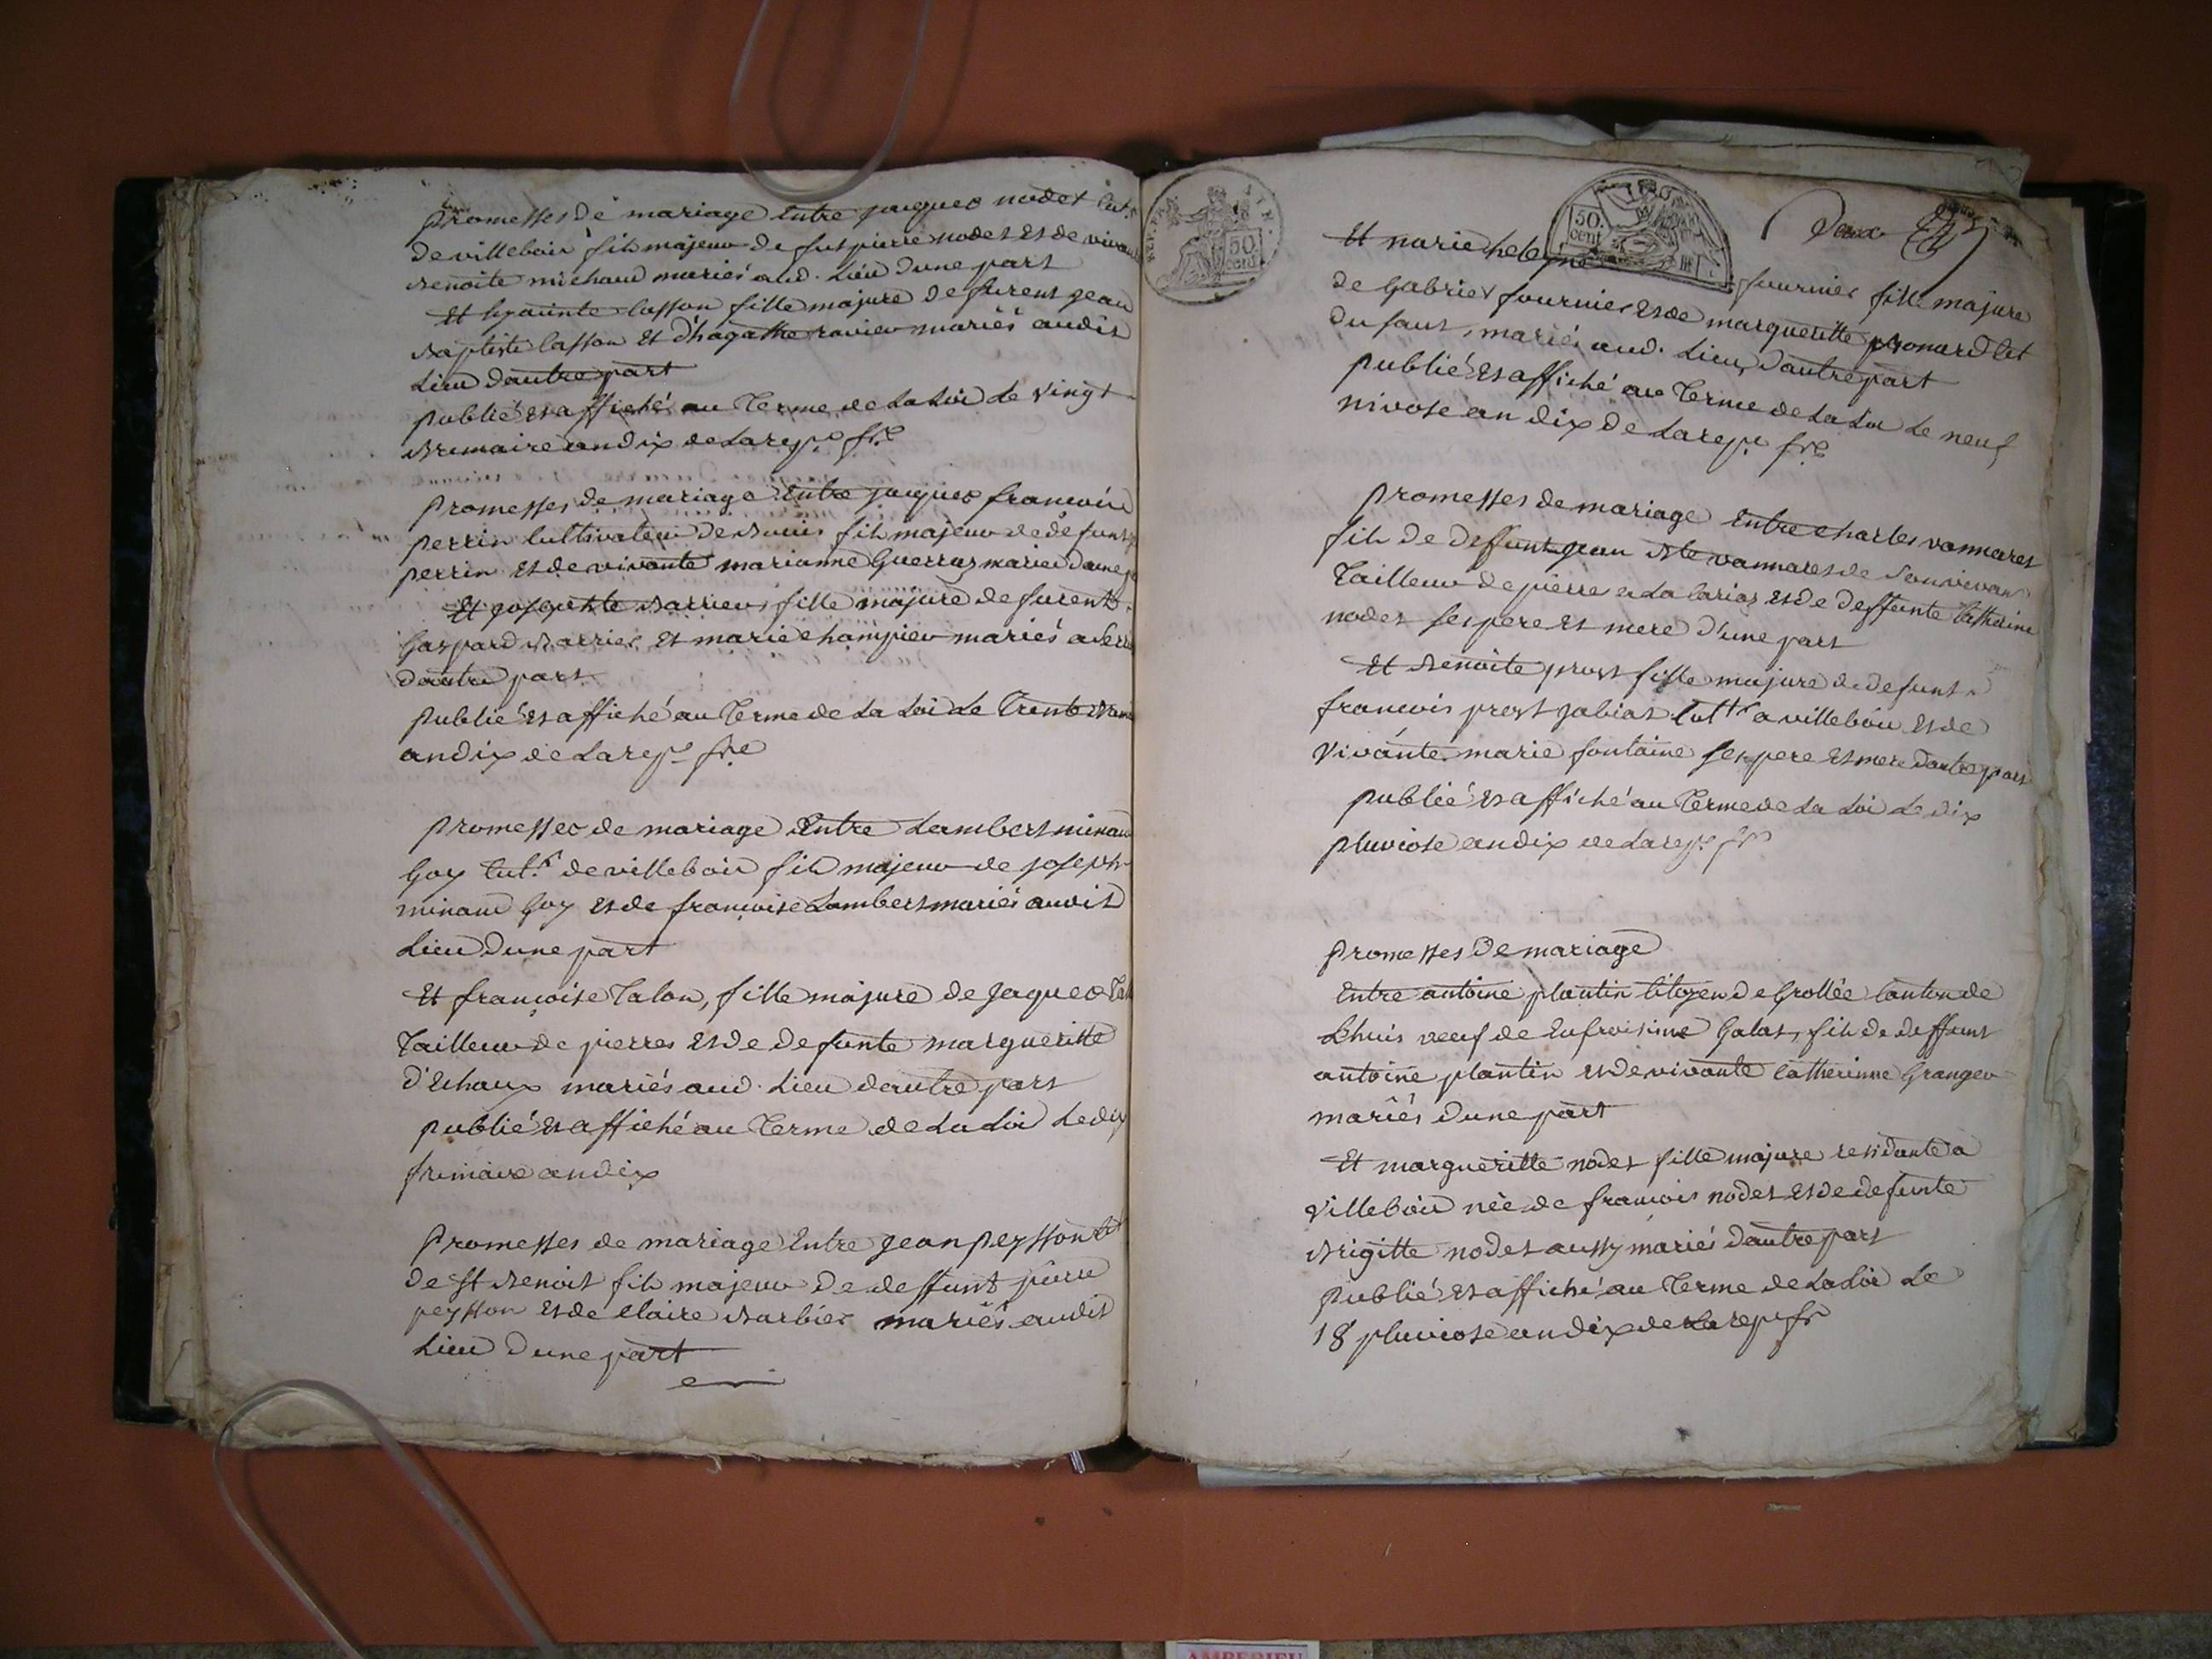 promesses de mariage Entre jacques nodet cult.r
de villebois fils majeur de fut pierre nodet et de vivante
Benoite michaud mariés aud. Lieu dune part
Et hyacinte Casson fille majure defurent jean
Baptiste Casson Et d'hagathe ravier mariés audit
Lieu dautre part
publié et affiché au Terme de La Loi Le vingt
Brumaire an dix de La rep.e fr.e
promesses de mariage Entre jacques francois
perrin Cultivateur de fils majeur de defunt
perrin et de vivante marianne Guerraz mariés dune p
Et josephte Barrier fille majure defurent
Gaspard Barrier et marie Champier mariés a
dautre part
publié et affiché au Terme de La Loi Le Trente Brum
an dix de La rep.e fr.e
promesses de mariage Entre Lambert minaud
Goy Cult.r de villebois fils majeur de joseph
minaud Goy et de francoise Lambert mariés audit
Lieu Dune part
Et francoise Talon, fille majure de jaques Tal
Tailleur de pierres et de defunte margueritte
d'Echaux mariés aud. Lieu dautre part
publié et affiché au Terme de La Loi Le dix
frimaire an dix
Promesses de mariage Entre jean peysson
de St Benoit fils majeur de deffunt pierre
peysson et de Claire Barbier mariés audit
Lieu Dune part
Deux
REP. FRA.
50. cent.
50. cent.
Et marie helene fournier fille majure
de Gabriel fournier et de margueritte promard
du saut, mariés aud. Lieu, Dautre part
publié et affiché au Terme de La Loi Le neuf
nivose an dix de La rep.e fr.e
promesses de mariage Entre Charles vannaret
fils de deffunt jean Bte vannaret de son vivant
Tailleur de pierre a La et de deffunte Catherine
nodet ses pere et mere d'une part
Et Benoite prost fille majure de defunt
francois prost jabiat Cult.r a villebois et de
vivante marie fontaine ses pere et mere dautre part
publié et affiché au Terme de La Loi Le dix
pluviose an dix de La rep.e fr
promesses de mariage
Entre antoine plantin Citoyen de Grollée Canton de
Lhuis veuf de Eufroisinne Galat, fils de deffunt
antoine plantin et de vivante Catherinne Granger
mariés dune part
Et margueritte nodet fille majure residante a
villebois née de francois nodet et de defunte
Brigitte nodet aussy mariés dautre part
publié et affiché au Terme de La Loi Le
18 pluviose an dix de La rep fr
AMBERIEU